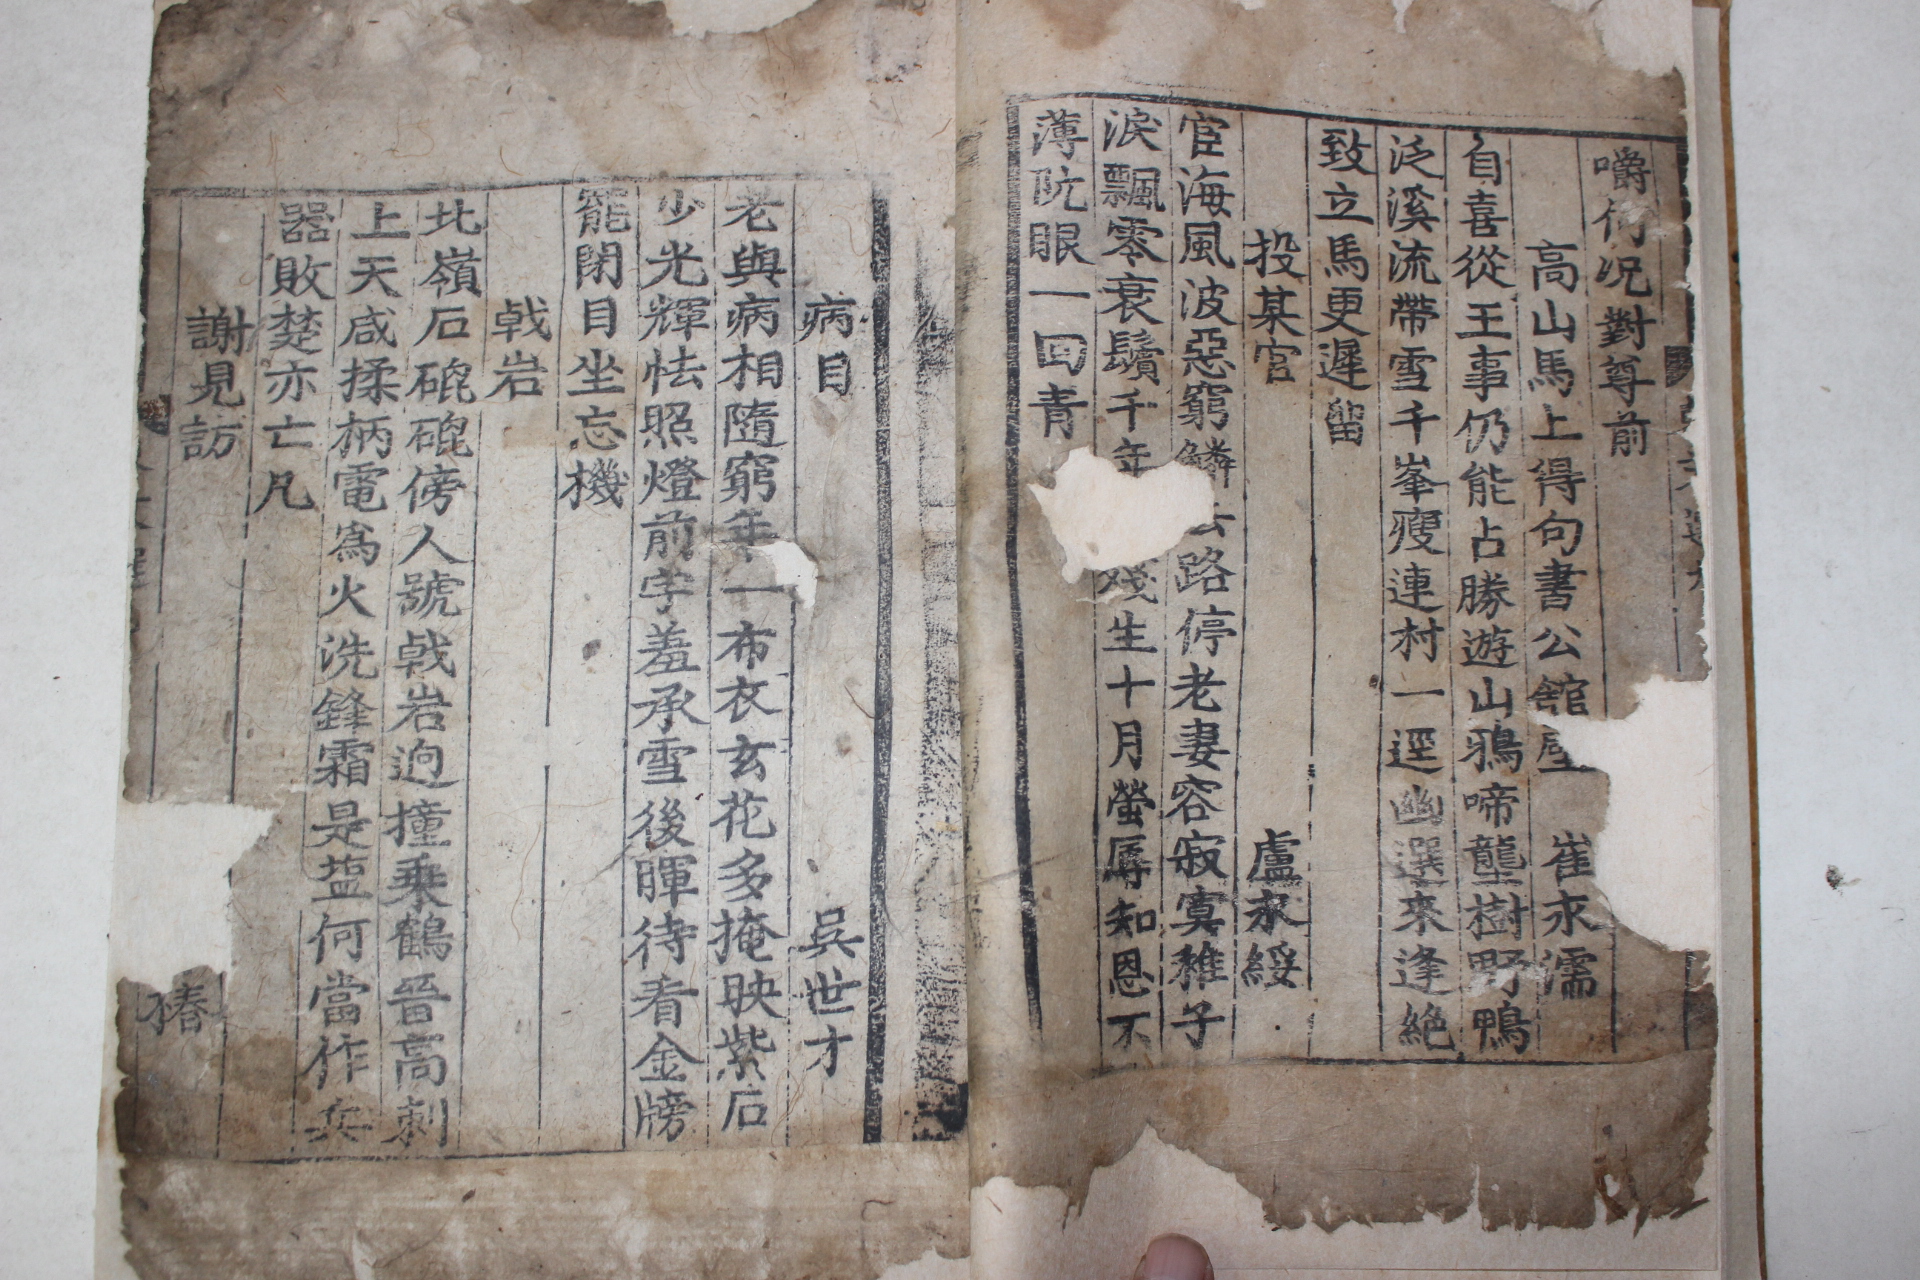 嚼何况對尊前
高山馬上得句書公館壁 崔永濡
自喜從王事仍能占勝遊山鴉啼壟樹野鴨
泛溪流帶雪千峯瘦連村一逕幽選來逢絶
致立馬更遲留
投某官 盧永綏
宦海風波惡窮鱗 路停老妻容寂寞稚子
淚飄零衰鬢千年 殘生十月螢辱知恩不
薄阮眼一回青
病目 吳世才
老與病相隨窮年一布衣玄花多掩映紫石
少光輝怯照燈前字羞承雪後暉待看金牓
罷閉目坐忘機
戟岩
北嶺石磈磈傍人號戟岩逈撞乗鶴晉高刺
上天咸揉柄電爲火洗鋒霜是塩何當作兵
器敗楚亦亡凡
謝見訪 椿